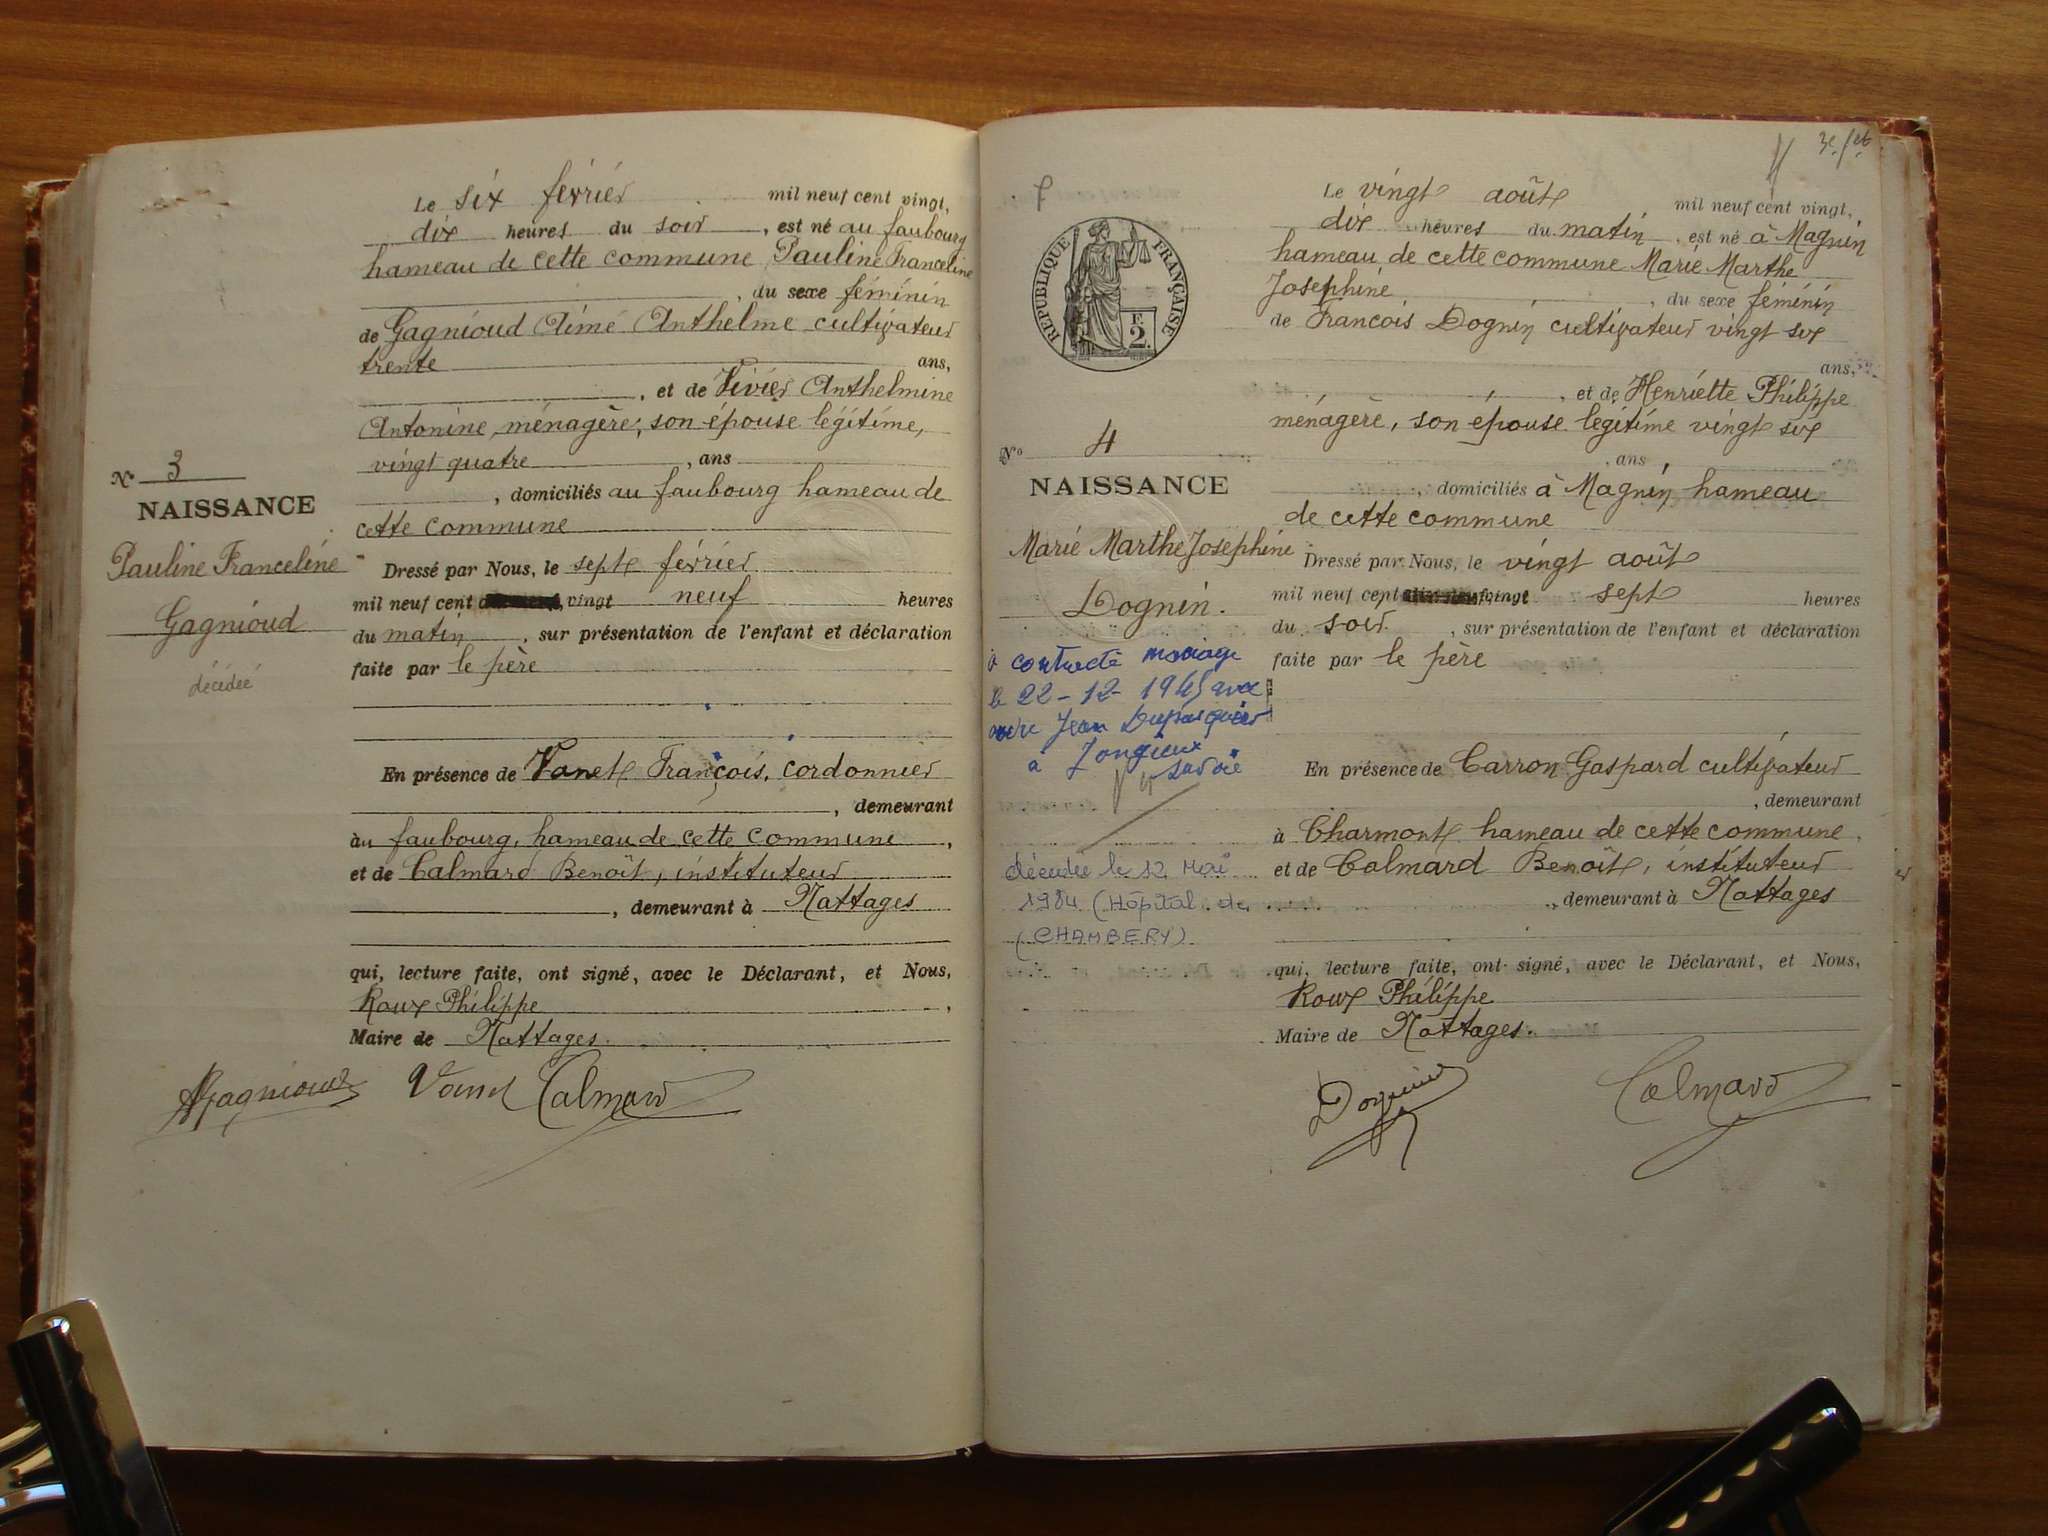 Le six février mil neuf cent vingt,
dix heures du soir, est né au faubourg
hameau de cette commune Pauline Franceline
, du sexe féminin
de Gagnioud Aimé Anthelme cultivateur
trente ans,
, et de Vivier Anthelmine
Antonine, ménagère, son épouse légitime,
vingt quatre, ans
, domiciliés au faubourg hameau de
cette commune
Dressé par Nous, le sept février
mil neuf cent vingt neuf heures
du matin, sur présentation de l'enfant et déclaration
faite par le père
En présence de Vanet François, cordonnier
, demeurant
au faubourg, hameau de cette commune,
et de Calmard Benoît, instituteur
, demeurant à Nattages
qui, lecture faite, ont signé, avec le Déclarant, et Nous,
Roux Philippe,
Maire de Nattages.
AGagnioud Vanet Calmard
No 3
NAISSANCE
Pauline Franceline
Gagnioud
décédée
3e f et
7
RÉPUBLIQUE FRANÇAISE
F.
2.
No 4
NAISSANCE
Marie Marthe Josephine
Dognin.
a contracté mariage
le 22-12-1945 avec
Jean Dupasquier
à Jongieux
Savoie
décédée le 12 Mai
1984 (Hôpital de
(CHAMBERY)
Le vingt août mil neuf cent vingt,
dix heures du matin, est né à Magnin
hameau de cette commune Marie Marthe
Josephine, du sexe féminin
de François Dognin cultivateur vingt six
ans,
, et de Henriette Philippe
ménagère, son épouse légitime vingt six
, ans
, domiciliés à Magnin, hameau
de cette commune
Dressé par Nous, le vingt août
mil neuf cent vingt sept heures
du soir, sur présentation de l'enfant et déclaration
faite par le père
En présence de Carron Gaspard cultivateur
, demeurant
à Charmont hameau de cette commune.
et de Calmard Benoît, instituteur
, demeurant à Nattages
qui, lecture faite, ont signé, avec le Déclarant, et Nous,
Roux Philippe
Maire de Nattages.
Dognin Calmard